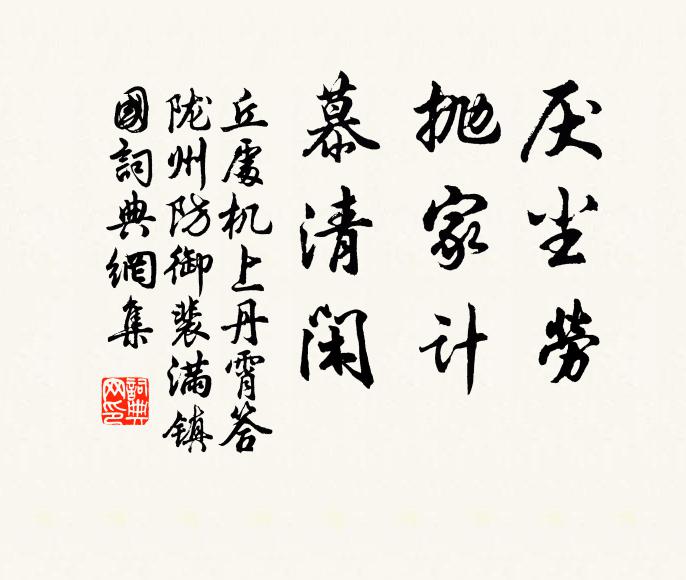 厌尘劳
抛家计
慕清闲
丘處机上丹霄答
陇州防御裴满镇
國詞典網集
詞典网印